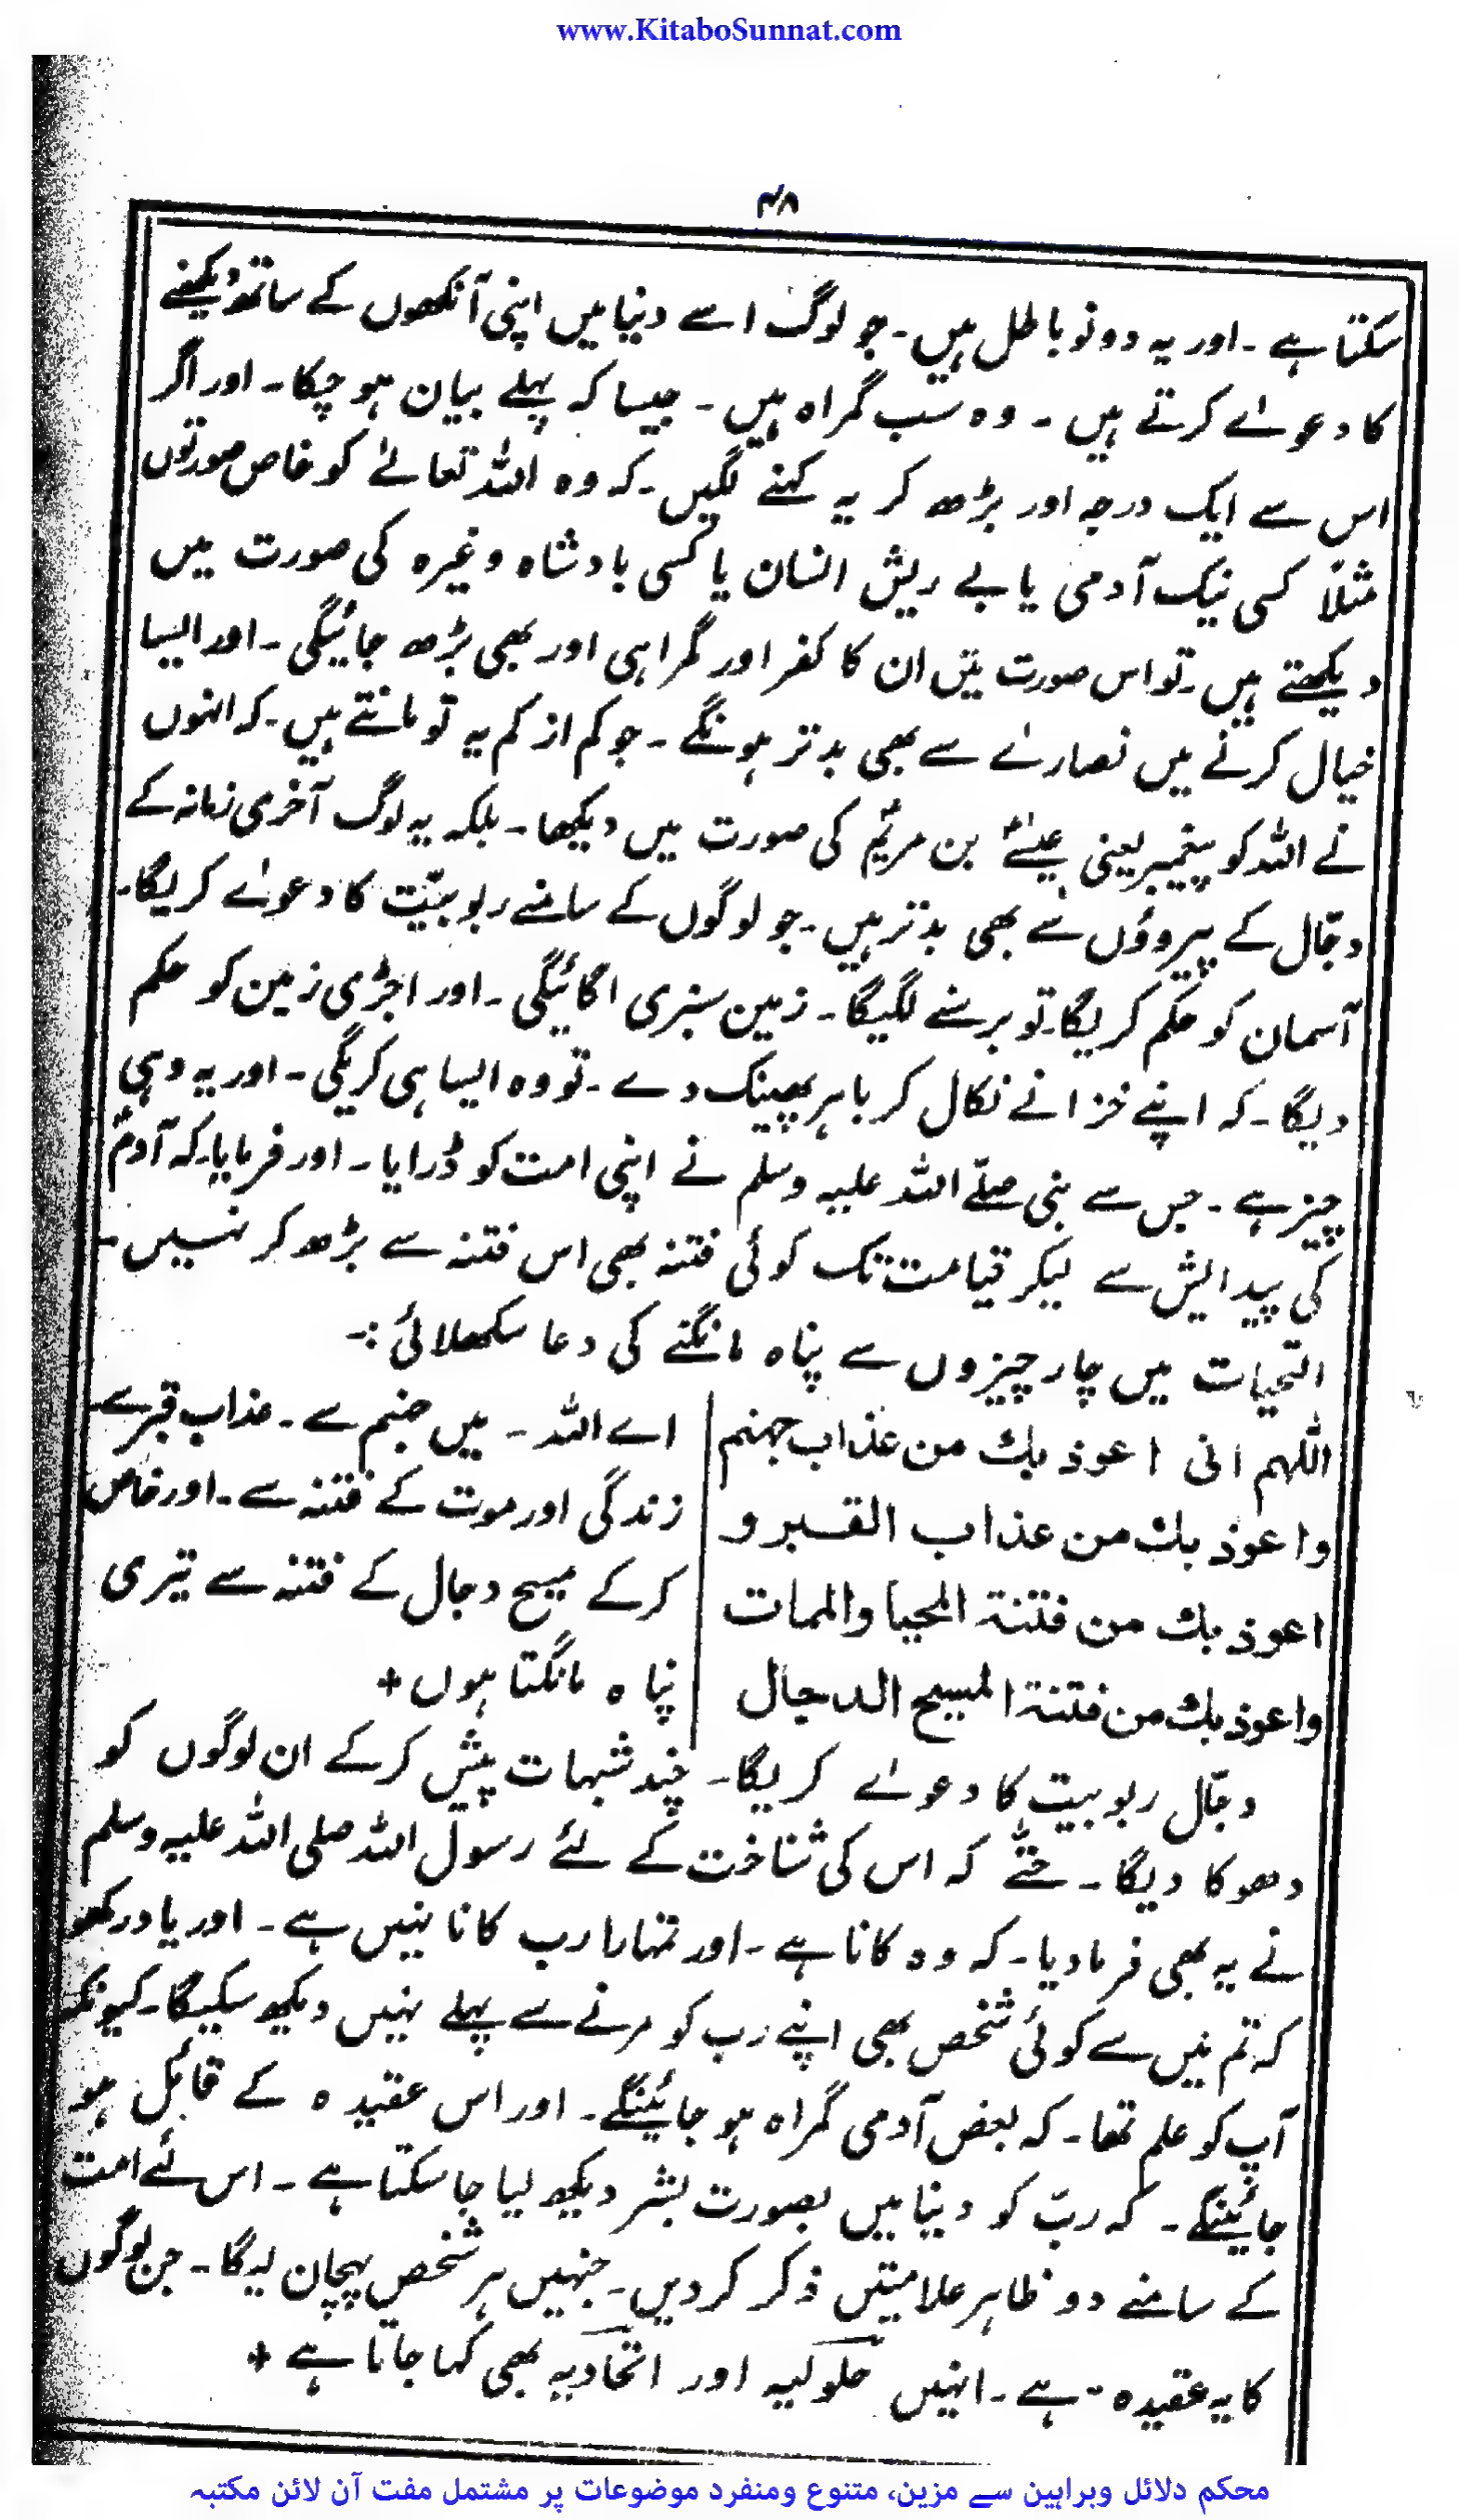 www.KitaboSunnat.com
۴۸
سکتا ہے ۔ اور یہ دونو باطل ہیں ۔ جو لوگ اسے دنیا میں اپنی آنکھوں کے ساتھ دیکھنے
کا دعوےٰ کرتے ہیں ۔ وہ سب گمراہ ہیں ۔ جیسا کہ پہلے بیان ہو چکا ۔ اور اگر
اس سے ایک درجہ اور بڑھ کر یہ کہنے لگیں ۔ کہ وہ اللہ تعالےٰ کو خاص صورتوں
مثلاً کسی نیک آدمی یا بے ریش انسان یا کسی بادشاہ وغیرہ کی صورت میں
دیکھتے ہیں ۔ تو اس صورت میں ان کا کفر اور گمراہی اور بھی بڑھ جائیگی ۔ اور ایسا
خیال کرنے میں نصارےٰ سے بھی بدتر ہونگے ۔ جو کم از کم یہ تو مانتے ہیں ۔ کہ انہوں
نے اللہ کو پیغمبر یعنی عیسےٰؑ بن مریمؑ کی صورت میں دیکھا ۔ بلکہ یہ لوگ آخری زمانہ کے
دجّال کے پیروؤں سے بھی بدتر ہیں ۔ جو لوگوں کے سامنے ربوبیّت کا دعوےٰ کریگا ۔
آسمان کو حکم کریگا ۔ تو برسنے لگیگا ۔ زمین سبزی اگائیگی ۔ اور اجڑی زمین کو حکم
دیگا ۔ کہ اپنے خزانے نکال کر باہر پھینک دے ۔ تو وہ ایسا ہی کریگی ۔ اور یہ وہی
چیز ہے ۔ جس سے نبی صلّے اللہ علیہ وسلم نے اپنی امت کو ڈرایا ۔ اور فرمایا ۔ کہ آدمؑ
کی پیدایش سے لیکر قیامت تک کوئی فتنہ بھی اس فتنہ سے بڑھ کر نہیں ۔
التحیات میں چار چیزوں سے پناہ مانگنے کی دعا سکھلائی :۔
اللهم انی اعوذ بك من عذاب جهنم
واعوذ بك من عذاب القبر و
اعوذ بك من فتنة المحیا والممات
واعوذ بك من فتنة المسیح الدجال
اے اللہ ۔ میں جہنم سے ۔ عذاب قبر سے
زندگی اور موت کے فتنہ سے ۔ اور خاص
کرکے مسیح دجال کے فتنہ سے تیری
پناہ مانگتا ہوں +
دجّال ربوبیت کا دعوےٰ کریگا ۔ چند شبہات پیش کرکے ان لوگوں کو
دھوکا دیگا ۔ حتّےٰ کہ اس کی شناخت کے لئے رسول اللہ صلی اللہ علیہ وسلم
نے یہ بھی فرما دیا ۔ کہ وہ کانا ہے ۔ اور تمہارا رب کانا نہیں ہے ۔ اور یاد رکھو
کہ تم میں سے کوئی شخص بھی اپنے رب کو مرنے سے پہلے نہیں دیکھ سکیگا ۔ کیونکہ
آپ کو علم تھا ۔ کہ بعض آدمی گمراہ ہو جائینگے ۔ اور اس عقیدہ کے قائل ہو
جائینگے ۔ کہ ربّ کو دنیا میں بصورت بشر دیکھ لیا جا سکتا ہے ۔ اس لئے امت
کے سامنے دو ظاہر علامتیں ذکر کر دیں ۔ جنہیں ہر شخص پہچان لیگا ۔ جن لوگوں
کا یہ عقیدہ ہے ۔ انہیں حلولیہ اور اتحادیہ بھی کہا جاتا ہے +
محکم دلائل وبراہین سے مزین، متنوع ومنفرد موضوعات پر مشتمل مفت آن لائن مکتبہ